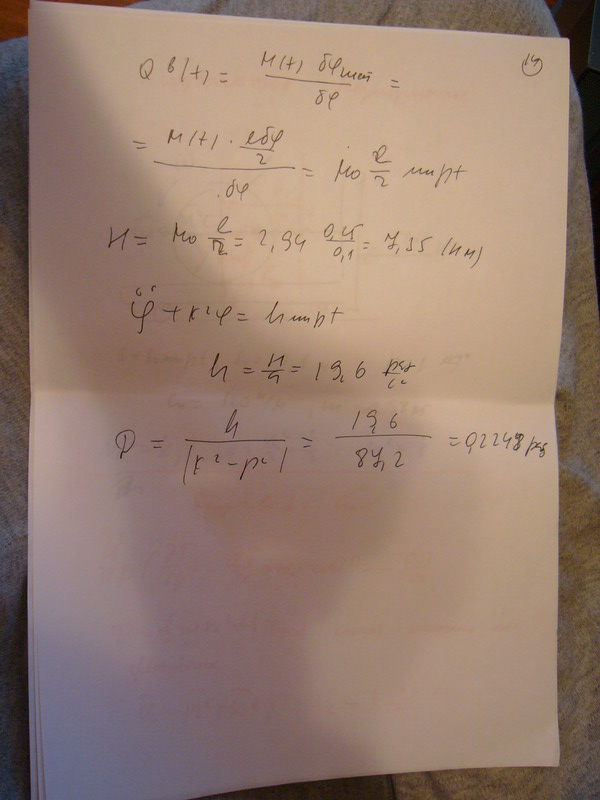 14
Q^в(t) = M(t) δφшест / δφ =
= M(t) · (ℓδφ/2) / δφ = M₀ ℓ/2 sin pt
H = M₀ ℓ/r₂ = 2,94 0,25/0,1 = 7,35 (Нм)
φ̈ + k²φ = h sin pt
h = H/a = 19,6 рад/с²
D = h / |k² - p²| = 19,6 / 87,2 = 0,2248 рад